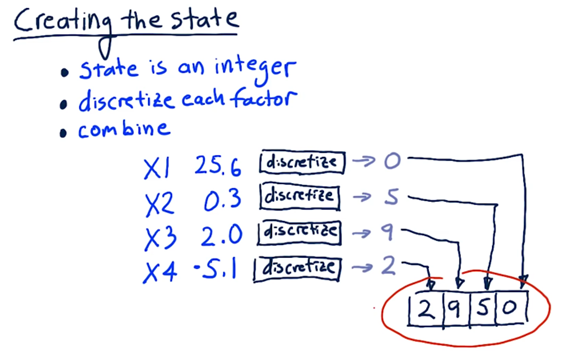 Creating the state
• State is an integer
• discretize each factor
• combine
X1 25.6 discretize → 0
X2 0.3 discretize → 5
X3 2.0 discretize → 9
X4 -5.1 discretize → 2
2 9 5 0